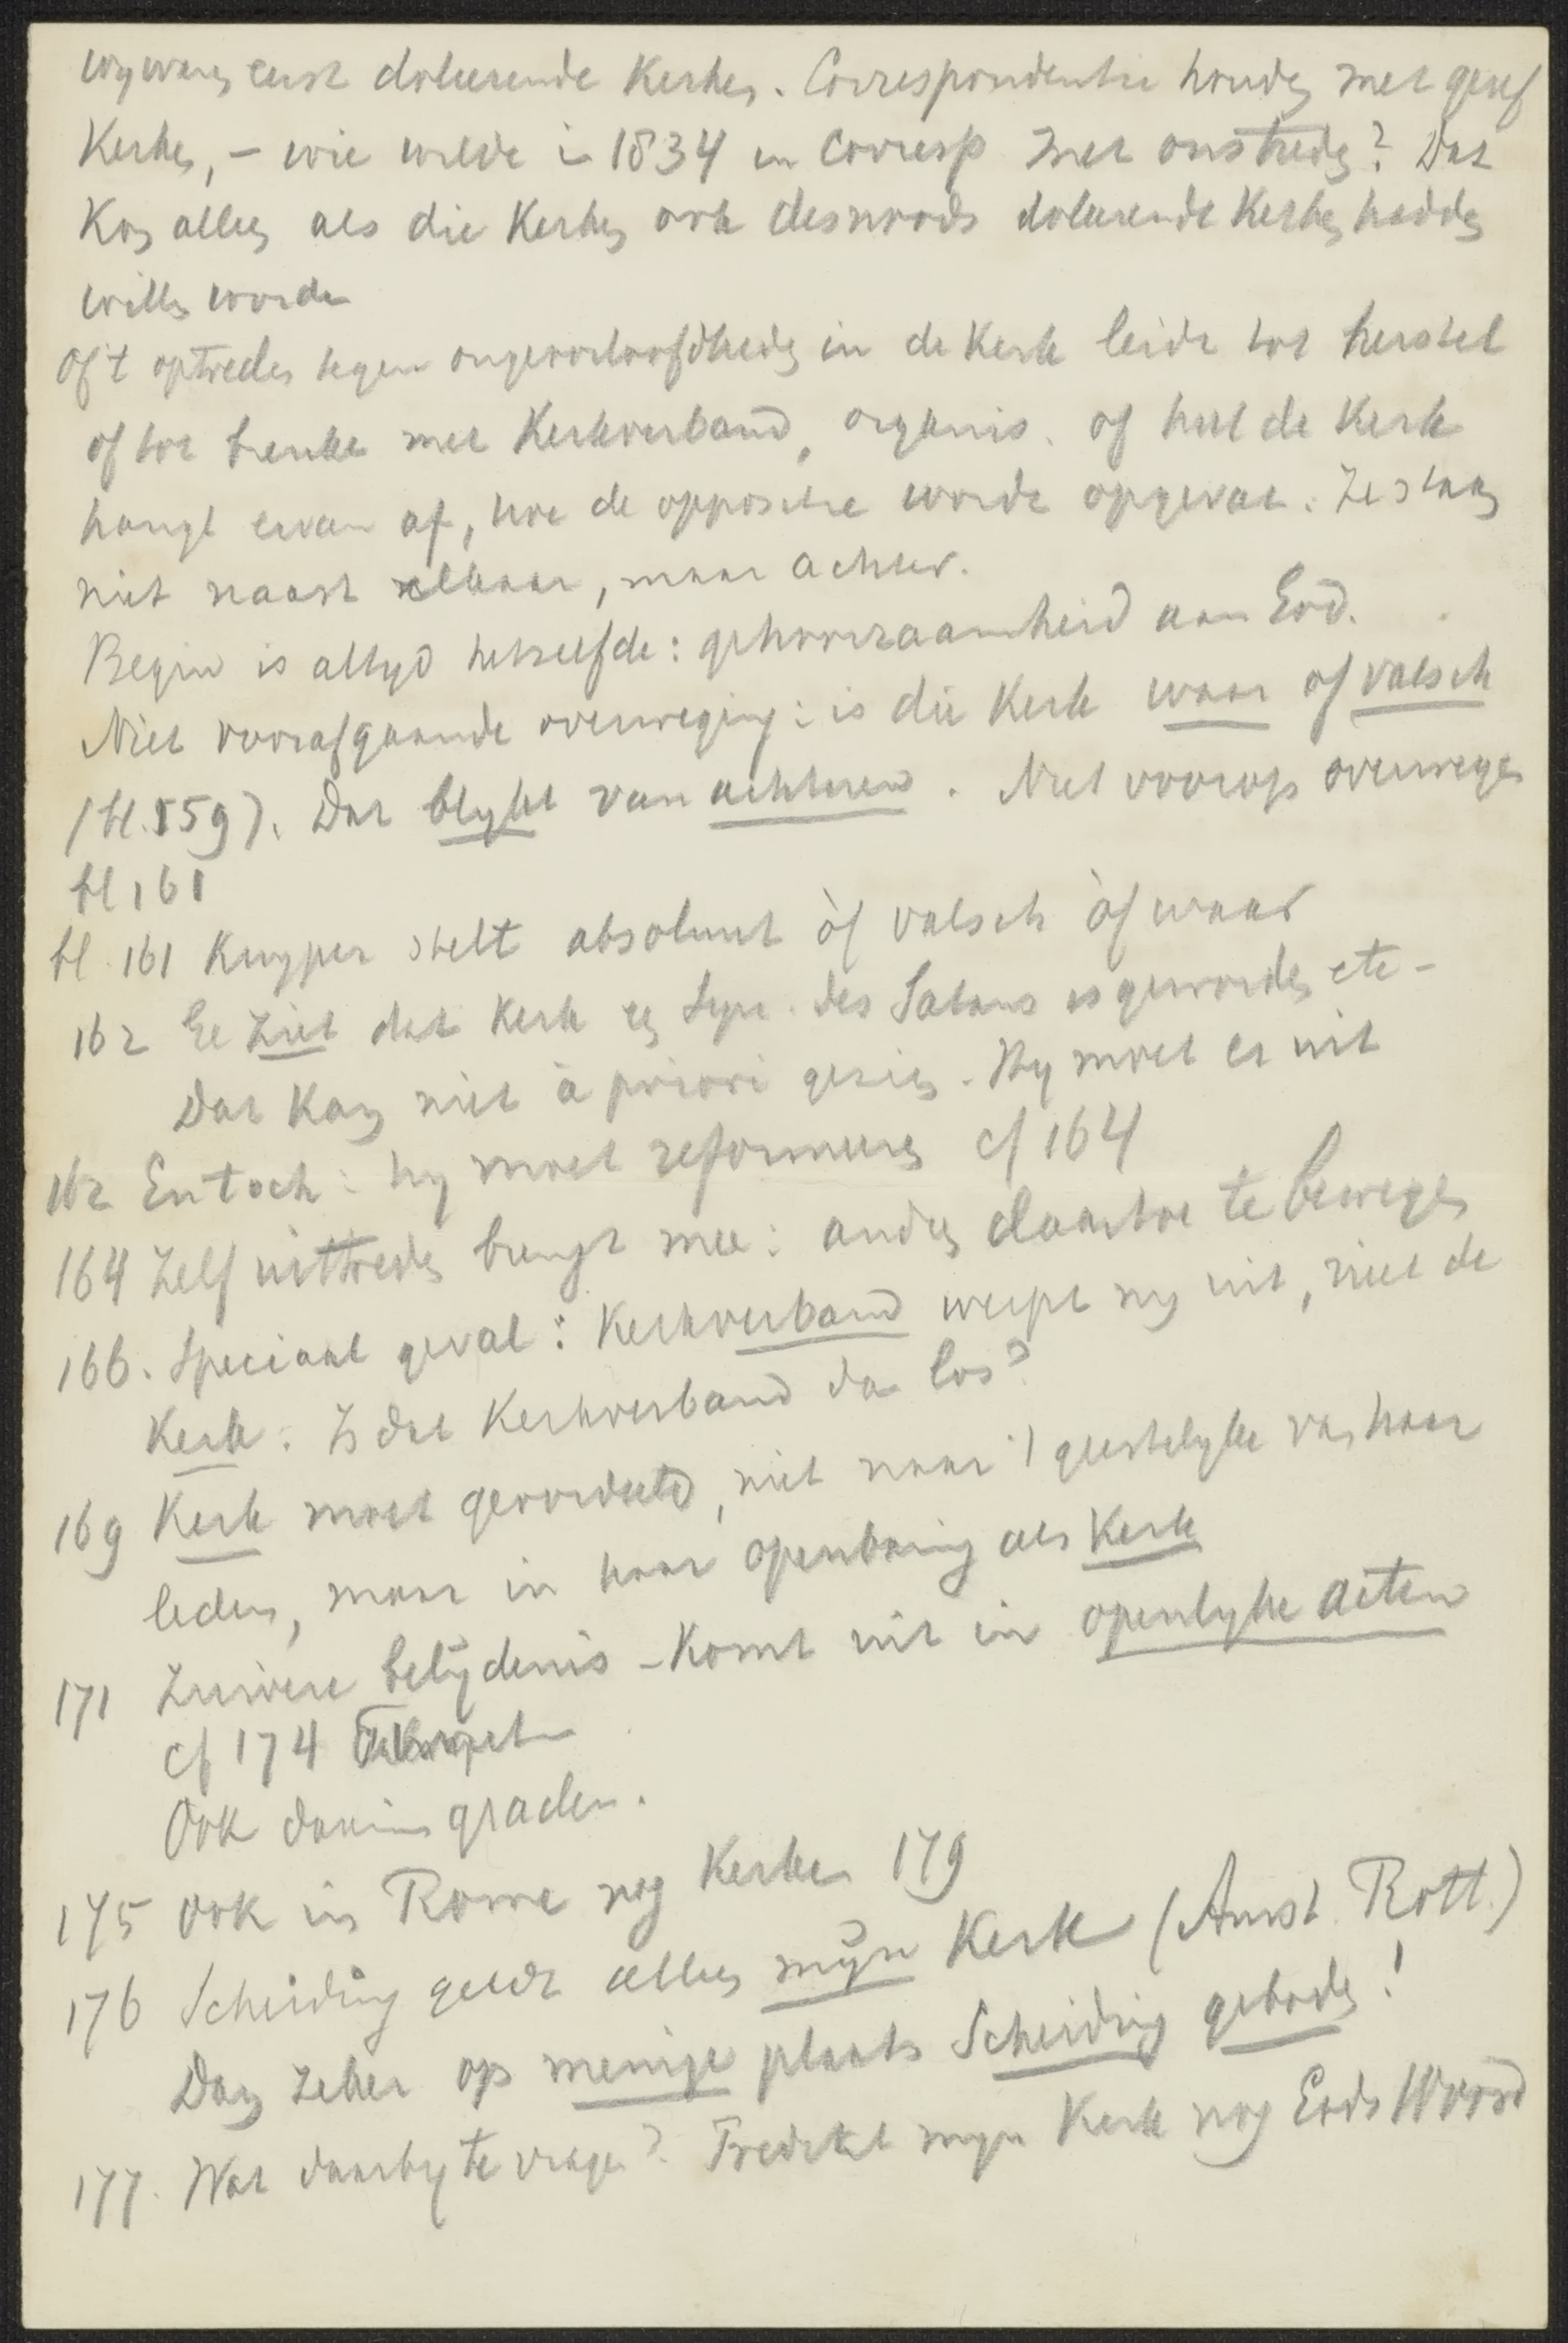 wij waren eerst doleerende Kerken. Correspondentie houden met geref
Kerken, – wie wilde in 1834 in Corresp met ons treden? Dat
Kon alleen als die Kerken ook desnoods doleerende Kerken hadden
willen worden
Of 't optreden tegen ongeoorloofdheden in de Kerk leidt tot herstel
of tot breuke met Kerkverband, organis. of heel de Kerk
hangt ervan af, hoe de oppositie wordt opgevat. Ze staan
niet naast elkaar, maar achter.
Begin is altijd hetzelfde: gehoorzaamheid aan God.
Niet voorafgaande overweging: is die Kerk waar of valsch
(bl. 159). Dat blijkt van achteren. Niet voorop overwegen
bl 161
bl. 161 Kuyper stelt absoluut òf valsch òf waar
162 Ge ziet dat Kerk een Syn. des Satans is geworden etc –
Dat Kan niet à priori gezien. Hij moet er uit
162 En toch: hij moet reformeeren cf 164
164 Zelf uittreden brengt mee: anderen daartoe te bewegen
166. Speciaal geval: Kerkverband werpt mij uit, niet de
Kerk. Is dat Kerkverband dan los?
169 Kerk moet geoordeeld, niet naar 't geestelijke van haar
leden, maar in haar openbaring als Kerk
171 Zuivere belijdenis – Komt uit in openlyke acten
cf 174
Ook daarin graden.
175 Ook in Rome nog Kerken 179
176 Scheiding geldt alleen mijn Kerk (Amst. Rott.)
Dan zeker op menige plaats Scheiding geboden!
177. Wat daarbij te vragen? Predikt mijn Kerk nog Gods Woord